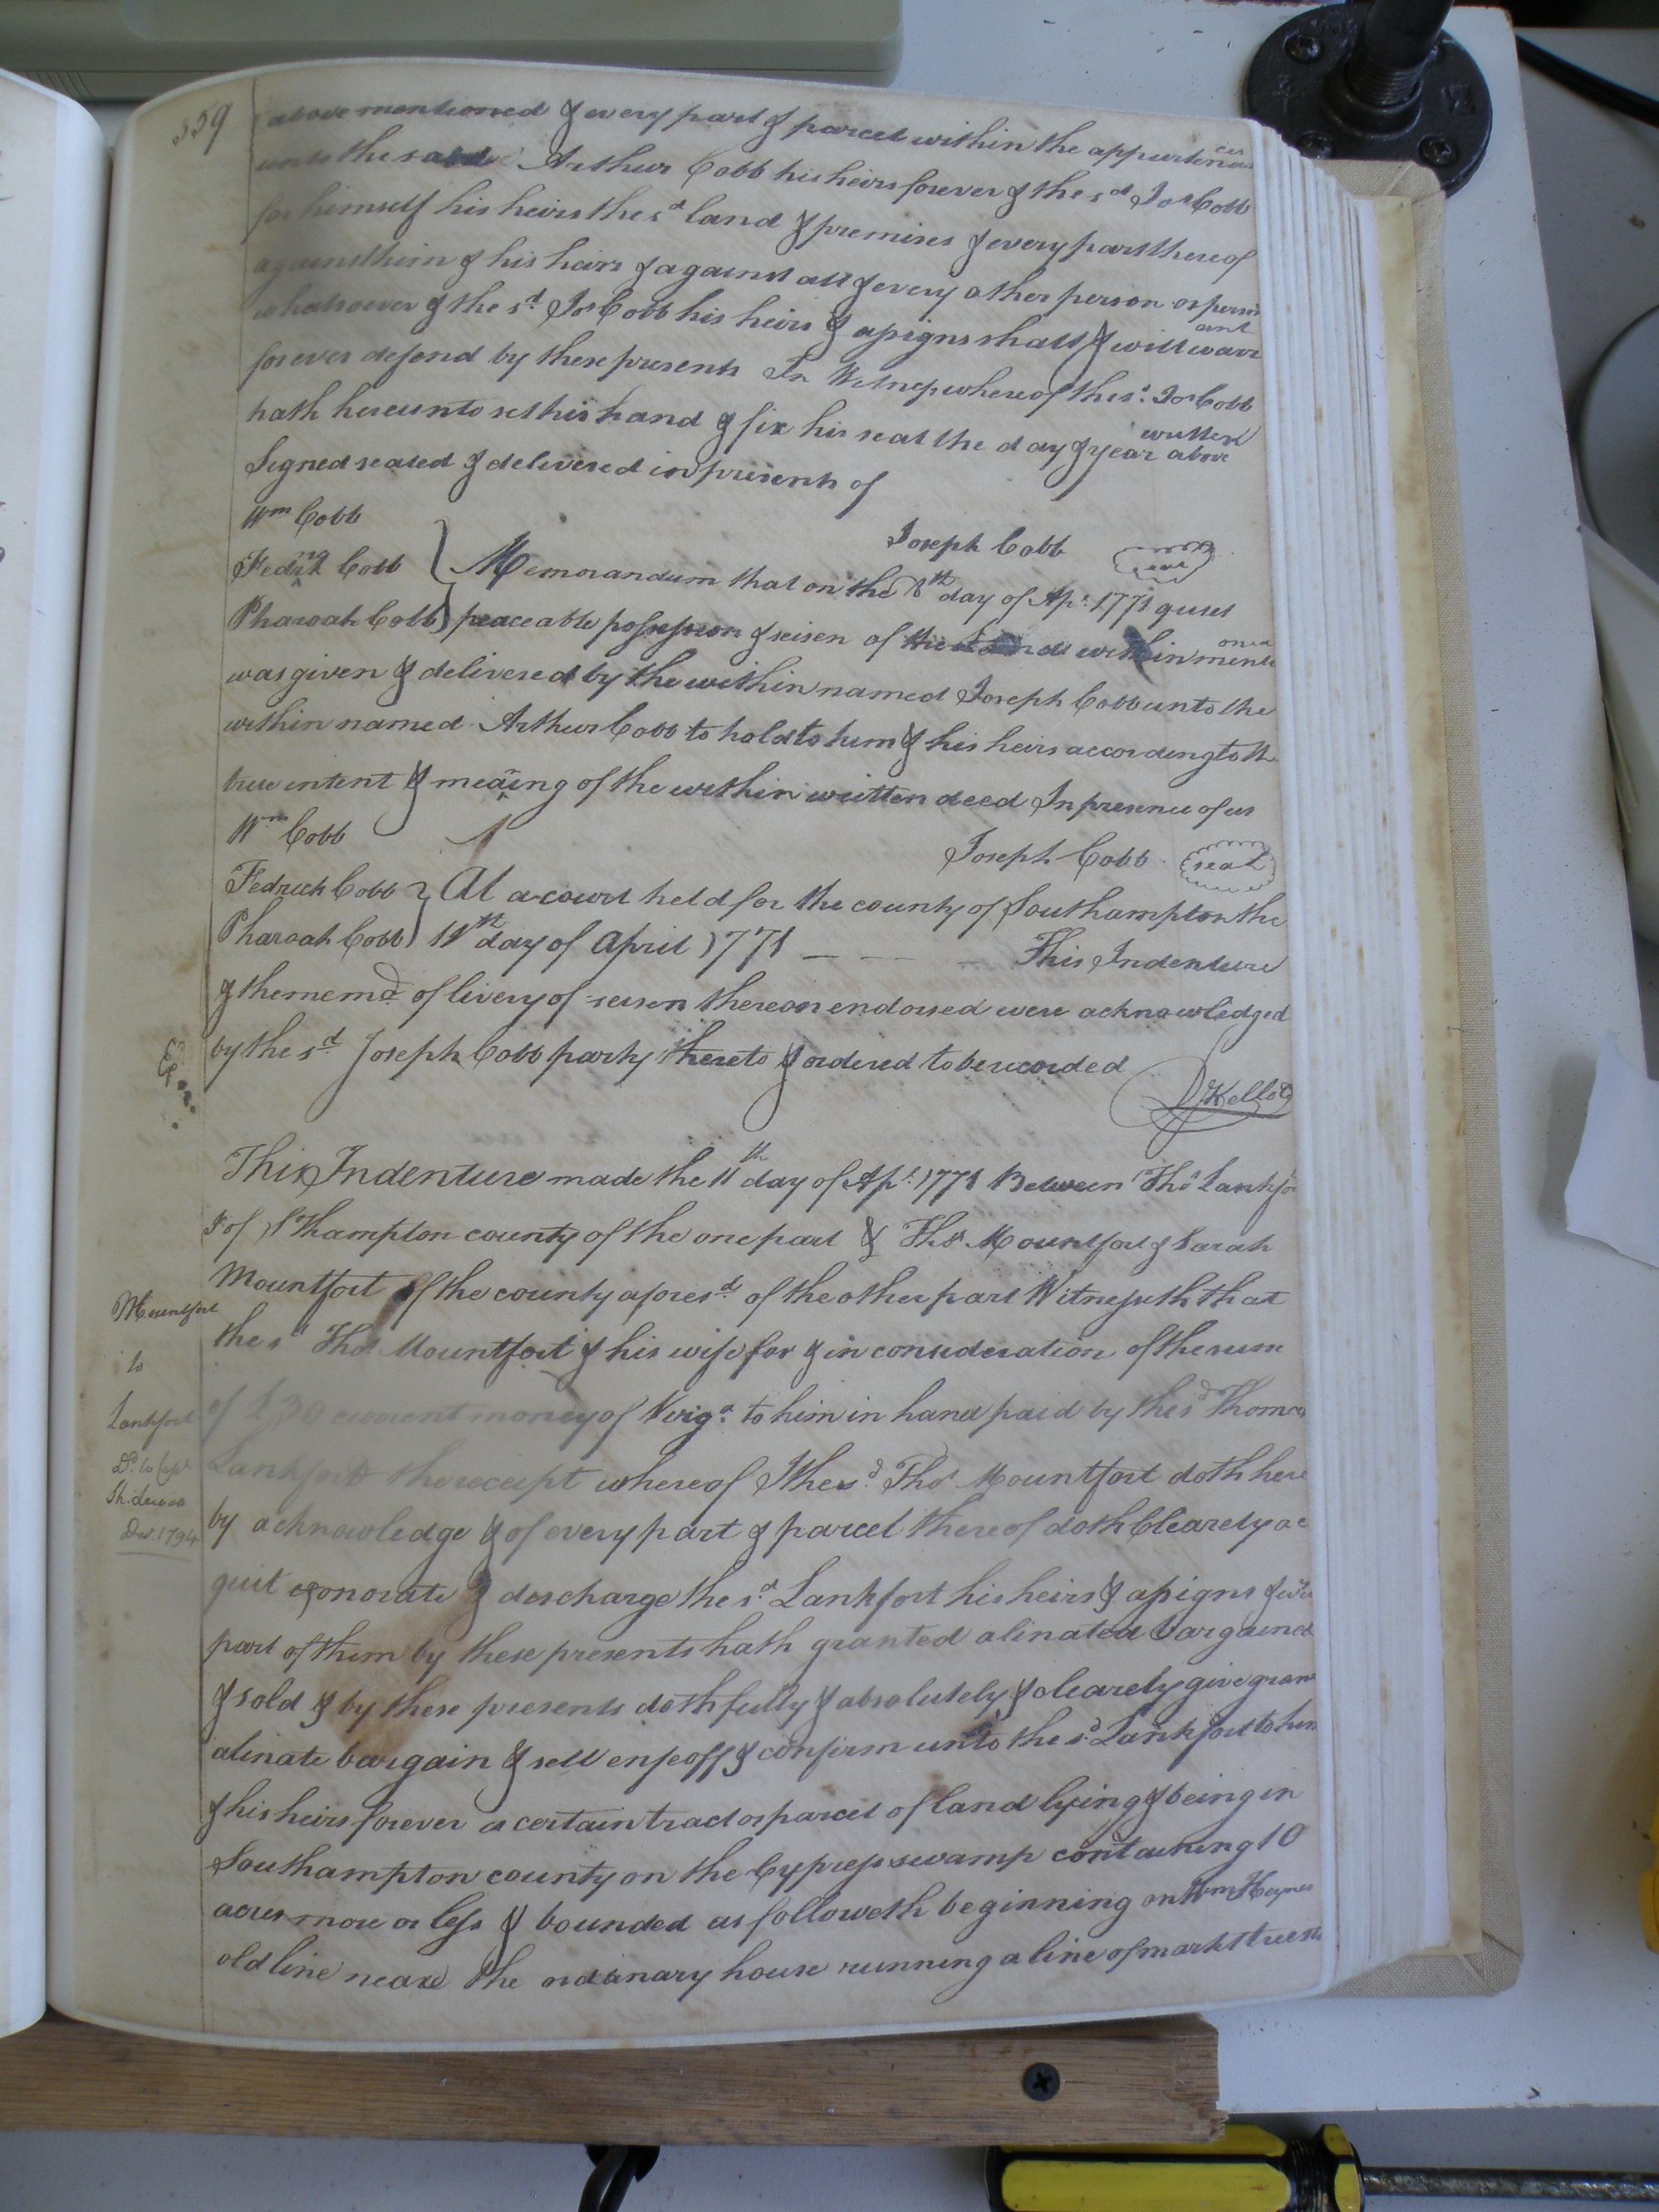 above mentioned & every part & parcel within the appurtenances
unto the said Arthur Cobb his heirs forever & the sd Jos Cobb
for himself his heirs the sd land & premises & every part thereof
against him & his heirs & against all & every other person or person
whatsoever & the sd Jos Cobb his heirs & assigns shall & will warrant
forever defend by these presents In Witness whereof the sd Jos Cobb
hath hereunto set his hand & fix his seal the day & year above written
Signed sealed & delivered in presents of
Wm Cobb
Joseph Cobb seal
Cobb Memorandum that on the 8th day of Apl 1771 quiet
Pharoah Cobb peaceable possession & seisen of the lands within mentioned
was given & delivered by the within named Joseph Cobb unto the
within named Arthur Cobb to hold to him & his heirs according to th
true intent & meaing of the within written deed In presence of us
Wm Cobb
Joseph Cobb seal
Fedrick Cobb At a court held for the county of Southampton the
Pharoah Cobb 11th day of April 1771 This Indenture
& the memd of livery of seisen thereon endorsed were acknowledged
by the sd Joseph Cobb party thereto & ordered to be recorded
This Indenture made the 11th day of Apl 1771 Between Thos Lankfor
of SThampton county of the one part & Thos Mountfort & Sarah
Mountfort of the county aforesd of the other part Witnesseth that
Mountfort
the sd Thos Mountfort & his wife for & in consideration of the sum
to
of £30 current money of Virga to him in hand paid by the sd Thomas
Lankfort
Lankfort the receipt whereof the sd Thos Mountfort doth here
by acknowledge & of every part & parcel thereof doth Clearely ac
Dec. 1794
quit exonorate & descharge the sd Lankfort his heirs & assigns &
part of them by these presents hath granted alinated bargained
& sold & by these presents doth fully & absolutely & clearely give gran
alinate bargain & sell enfeoff & confirm unto the sd Lankfort to him
& his heirs forever a certain tract or parcel of land lying & being in
Southampton county on the Cypress swamp containing 10
acres more or less & bounded as followeth beginning on Wm
old line neare the ordinary house running a line of markt trees